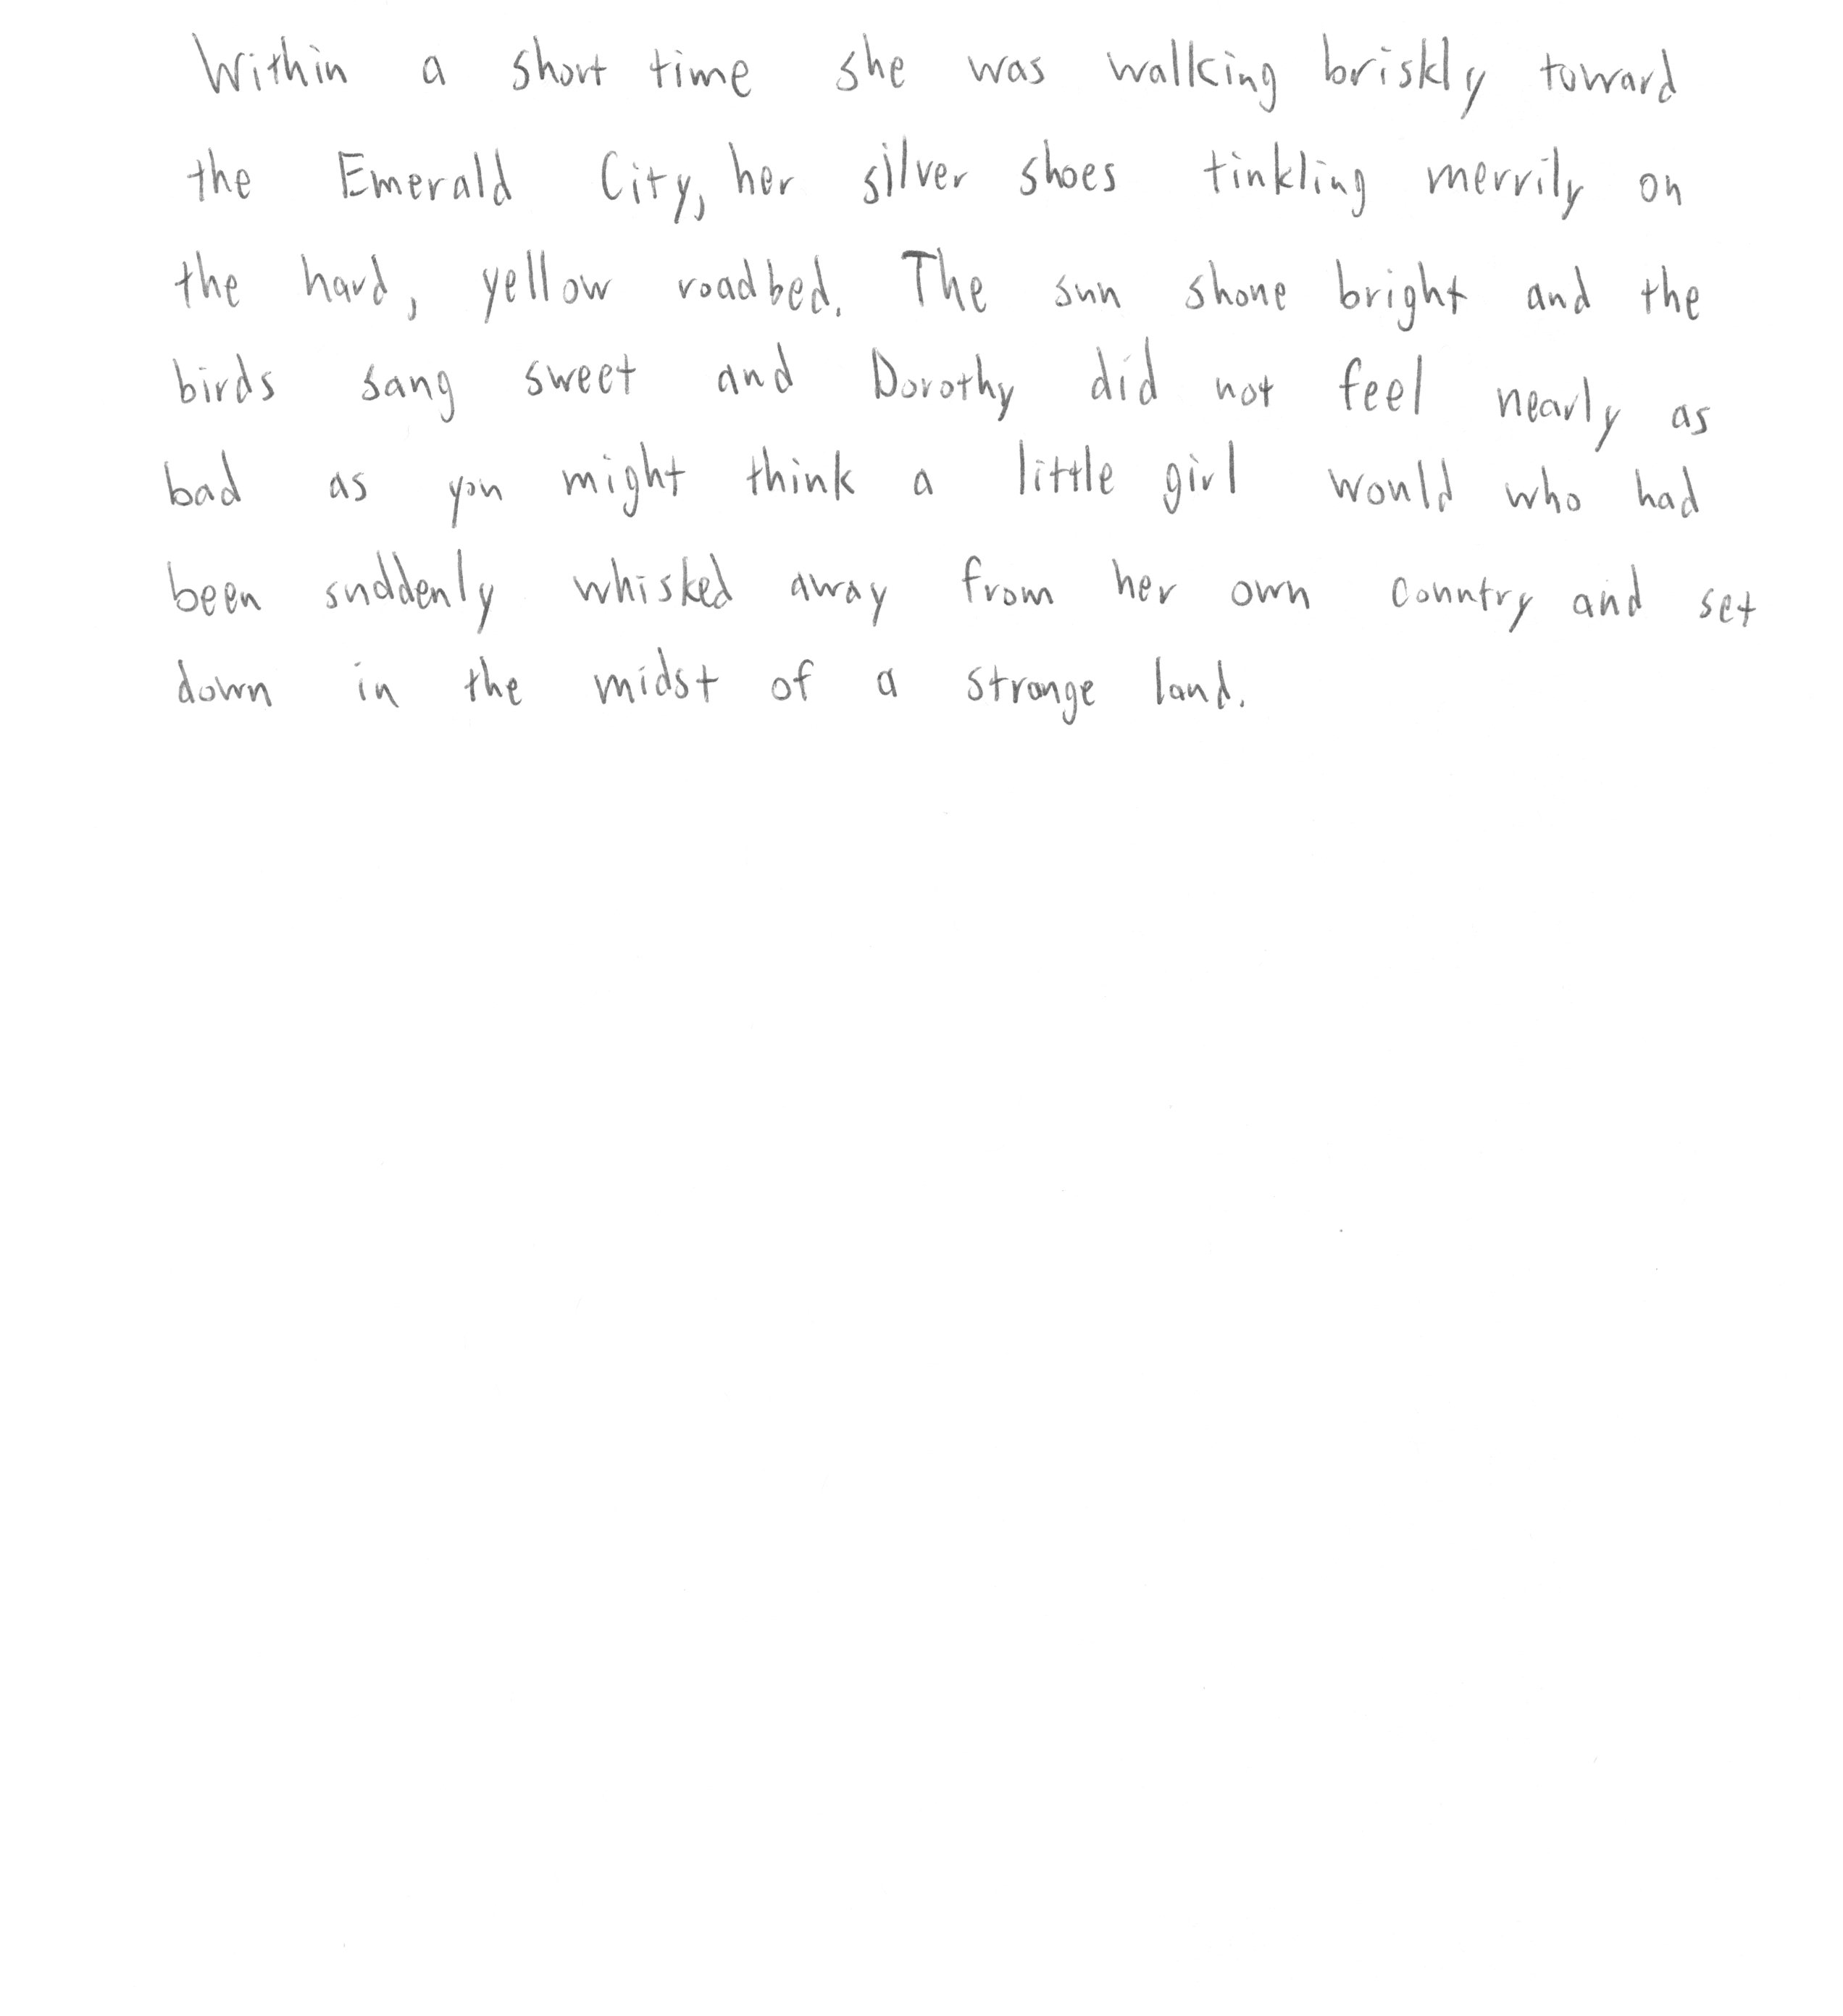 Within a short time she was walking briskly toward
the Emerald City, her silver shoes tinkling merrily on
the hard, yellow roadbed. The sun shone bright and the
birds sang sweet and Dorothy did not feel nearly as
bad as you might think a little girl would who had
been suddenly whisked away from her own country and set
down in the midst of a strange land.